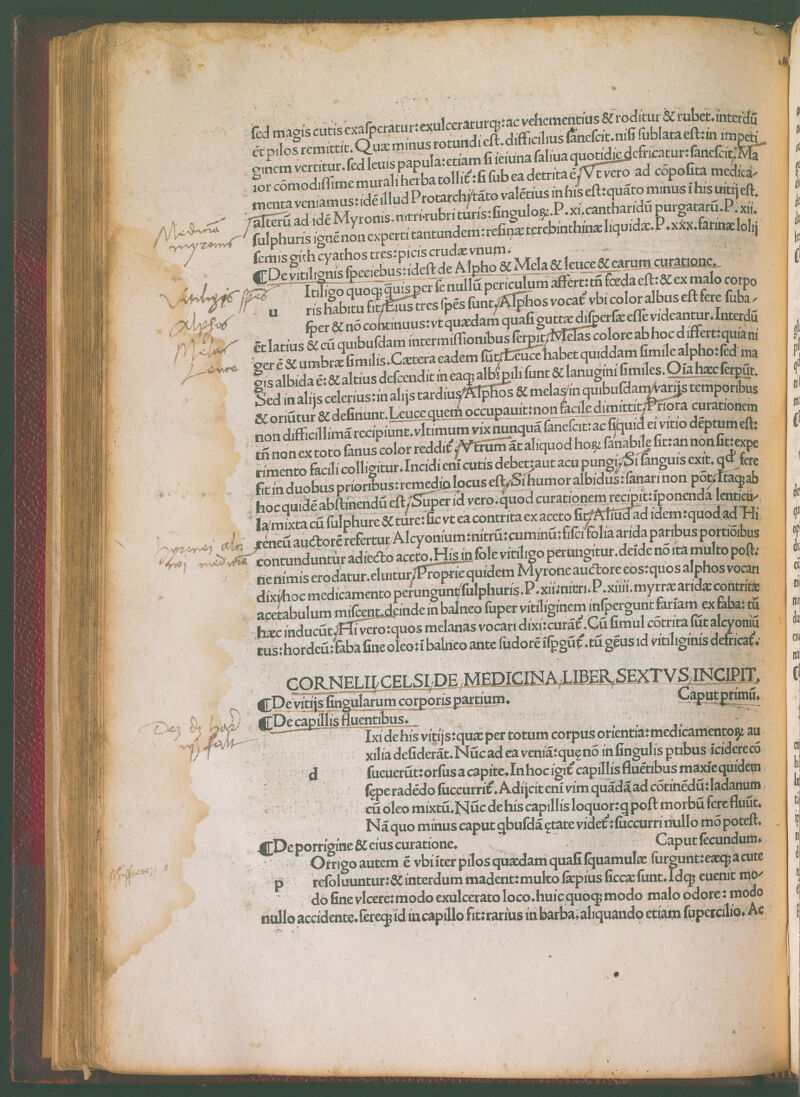 sed magis cutis exasperatur:exulceraturq;:ac vehementius & roditur & rubet.interdū
ēt pilos remittit.Quæ minus rotundi est.difficilius sanescit.nisi sublata est:in impeti
ginem vertitur.sed leuis papula:etiam si ieiuna saliua quotidie defricatur:sanescit.Ma
ior cōmodissime murali herba tollit̄:si sub ea detrita ē/Vt vero ad cōposita medicā
menta veniamus:idē illud Protarchi/tāto valētius in his est:quāto minus ī his uitij est.
/alterū ad idē Myronis.nitri rubri turis:singuloꝝ.P.xi.cantharidū purgatarū.P.xii.
sulphuris ignē non experti tantundem:resinæ terebinthinæ liquidæ.P.xxx.farinæ lolij
semis gith cyathos tres:picis crudæ vnum.
¶De vitiliginis speciebus:idest de Alpho & Mela & leuce & earum curatione.
Itiligo quoq; quis per se nullū periculum affert:tn̄ fœda est:& ex malo corpo
u ris habitu fit/Eius tres spēs sunt,/Alphos vocat̄ vbi color albus est fere suba
sper & nō continuus:vt quædam quasi guttæ dispersæ esse videantur.Interdū
ēt latius & cū quibusdam intermissionibus serpit/Melas colore ab hoc differt:quia ni
ger ē & umbræ similis.Cætera eadem sūt/Leuce habet quiddam simile alpho:sed ma
gis albida ē:& altius descendit:in eaq; albi pili sunt & lanugini similes.Oīa hæc serpūt.
Sed in alijs celerius:in alijs tardius/Alphos & melas/in quibusdam/varijs temporibus
& oriūtur & desinunt.Leuce quem occupauit:non facile dimittit/Priora curationem
non difficillimā recipiunt.vltimum vix nunquā sanescit:ac siquid ei vitio dēptum est:
tn̄ non ex toto sanus color reddit̄/Vtrum āt aliquod hoꝝ sanabile sit:an non sit:expe
rimento facili colligitur.Incidi eni cutis debet:aut acu pungi/Si sanguis exit.qd̄ fere
fit in duobus prioribus:remedio locus est/Si humor albidus:sanari non pōt/Itaq; ab
hoc quidē abstinendū est/Super id vero.quod curationem recipit:iponenda lenticu
la mixta cū sulphure & ture:sic vt ea contrita ex aceto sit/Aliud ad idem:quod ad Hi
reneū auctorē refertur Alcyonium:nitrū:cuminū:fifci folia arida paribus portiōibus
contunduntur adiecto aceto.His in sole vitiligo perungitur.deīde nō ita multo post:
ne nimis erodatur.eluitur/Proprie quidem Myrone auctore eos:quos alphos vocari
dixi/hoc medicamento perungunt sulphuris.P.xii:nitri.P.xiiii.myrræ aridæ contritæ
acetabulum miscent.deinde in balneo super vitiliginem inspergunt fariam ex faba:tū
hæc inducūt/Hi vero:quos melanas vocari dixi:curāt̄.Cū simul cōtrita sūt alcyoniū
tus:hordeū:faba sine oleo:ī balneo ante sudorē īspgūt̄.tū gēus id vitiliginis defricat̄.
CORNELII,CELSI,DE,MEDICINA,LIBER,SEXTVS,INCIPIT,
¶De vitijs singularum corporis partium. Caput primū.
¶De capillis fluentibus.
Ixi de his vitijs:quæ per totum corpus orientia:medicamentoꝝ au
xilia desiderāt.Nūc ad ea veniā:quę nō in singulis ptibus īcidere cō
d sueuerūt:orsus a capite.In hoc igit̄ capillis fluētibus maxīe quidem
sępe radēdo succurrit̄.Adijcit eni vim quādā ad cōtinēdū:ladanum
cū oleo mixtū.Nūc de his capillis loquor:q post morbū fere fluūt.
Nā quo minus caput qbusdā ętate videt̄:succurri nullo mō potest.
¶De porrigine & eius curatione. Caput secundum.
Orrigo autem ē vbi īter pilos quædam quasi squamulæ surgunt:eæq; a cute
p resoluuntur:& interdum madent:multo sæpius siccæ sunt.Idq; euenit mo
do sine vlcere:modo exulcerato loco.huic quoq; modo malo odore:modo
nullo accidente.fereq; id in capillo fit:rarius in barba,aliquando etiam supercilio.Ac
Alphos
Melas
Leuce